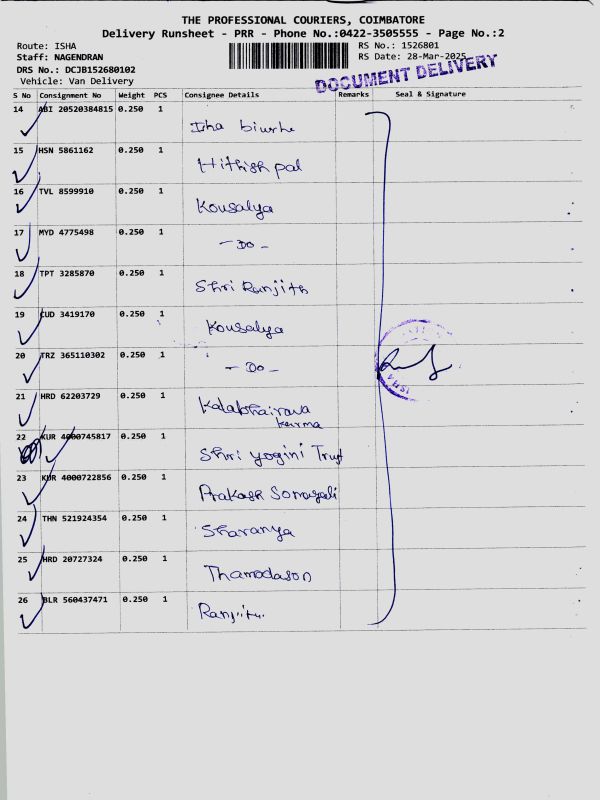 THE PROFESSIONAL COURIERS, COIMBATORE
Delivery Runsheet - PRR - Phone No.:0422-3505555 - Page No.:2
Route: ISHA
Staff: NAGENDRAN
DRS No.: DCJB152680102
Vehicle: Van Delivery
RS No.: 1526801
RS Date: 28-Mar-2025
DOCUMENT DELIVERY
S No Consignment No Weight PCS Consignee Details Remarks Seal & Signature
14 ABI 20520384815 0.250 1
Isha
15 HSN 5861162 0.250 1 Hithish pal
16 TVL 8599910 0.250 1 Kousalya
17 MYD 4775498 0.250 1 - Do -
18 TPT 3285870 0.250 1 Shri Ranjith
19 CUD 3419170 0.250 1 Kousalya
20 TRZ 365110302 0.250 1 - Do -
21 HRD 62203729 0.250 1 Kalabhairava
karma
22 KUR 4000745817 0.250 1 Shri yogini Trust
23 KUR 4000722856 0.250 1 Prakash
24 THN 521924354 0.250 1 Sharanya
25 HRD 20727324 0.250 1 Thamodason
26 BLR 560437471 0.250 1 Ranjitu
ISHA